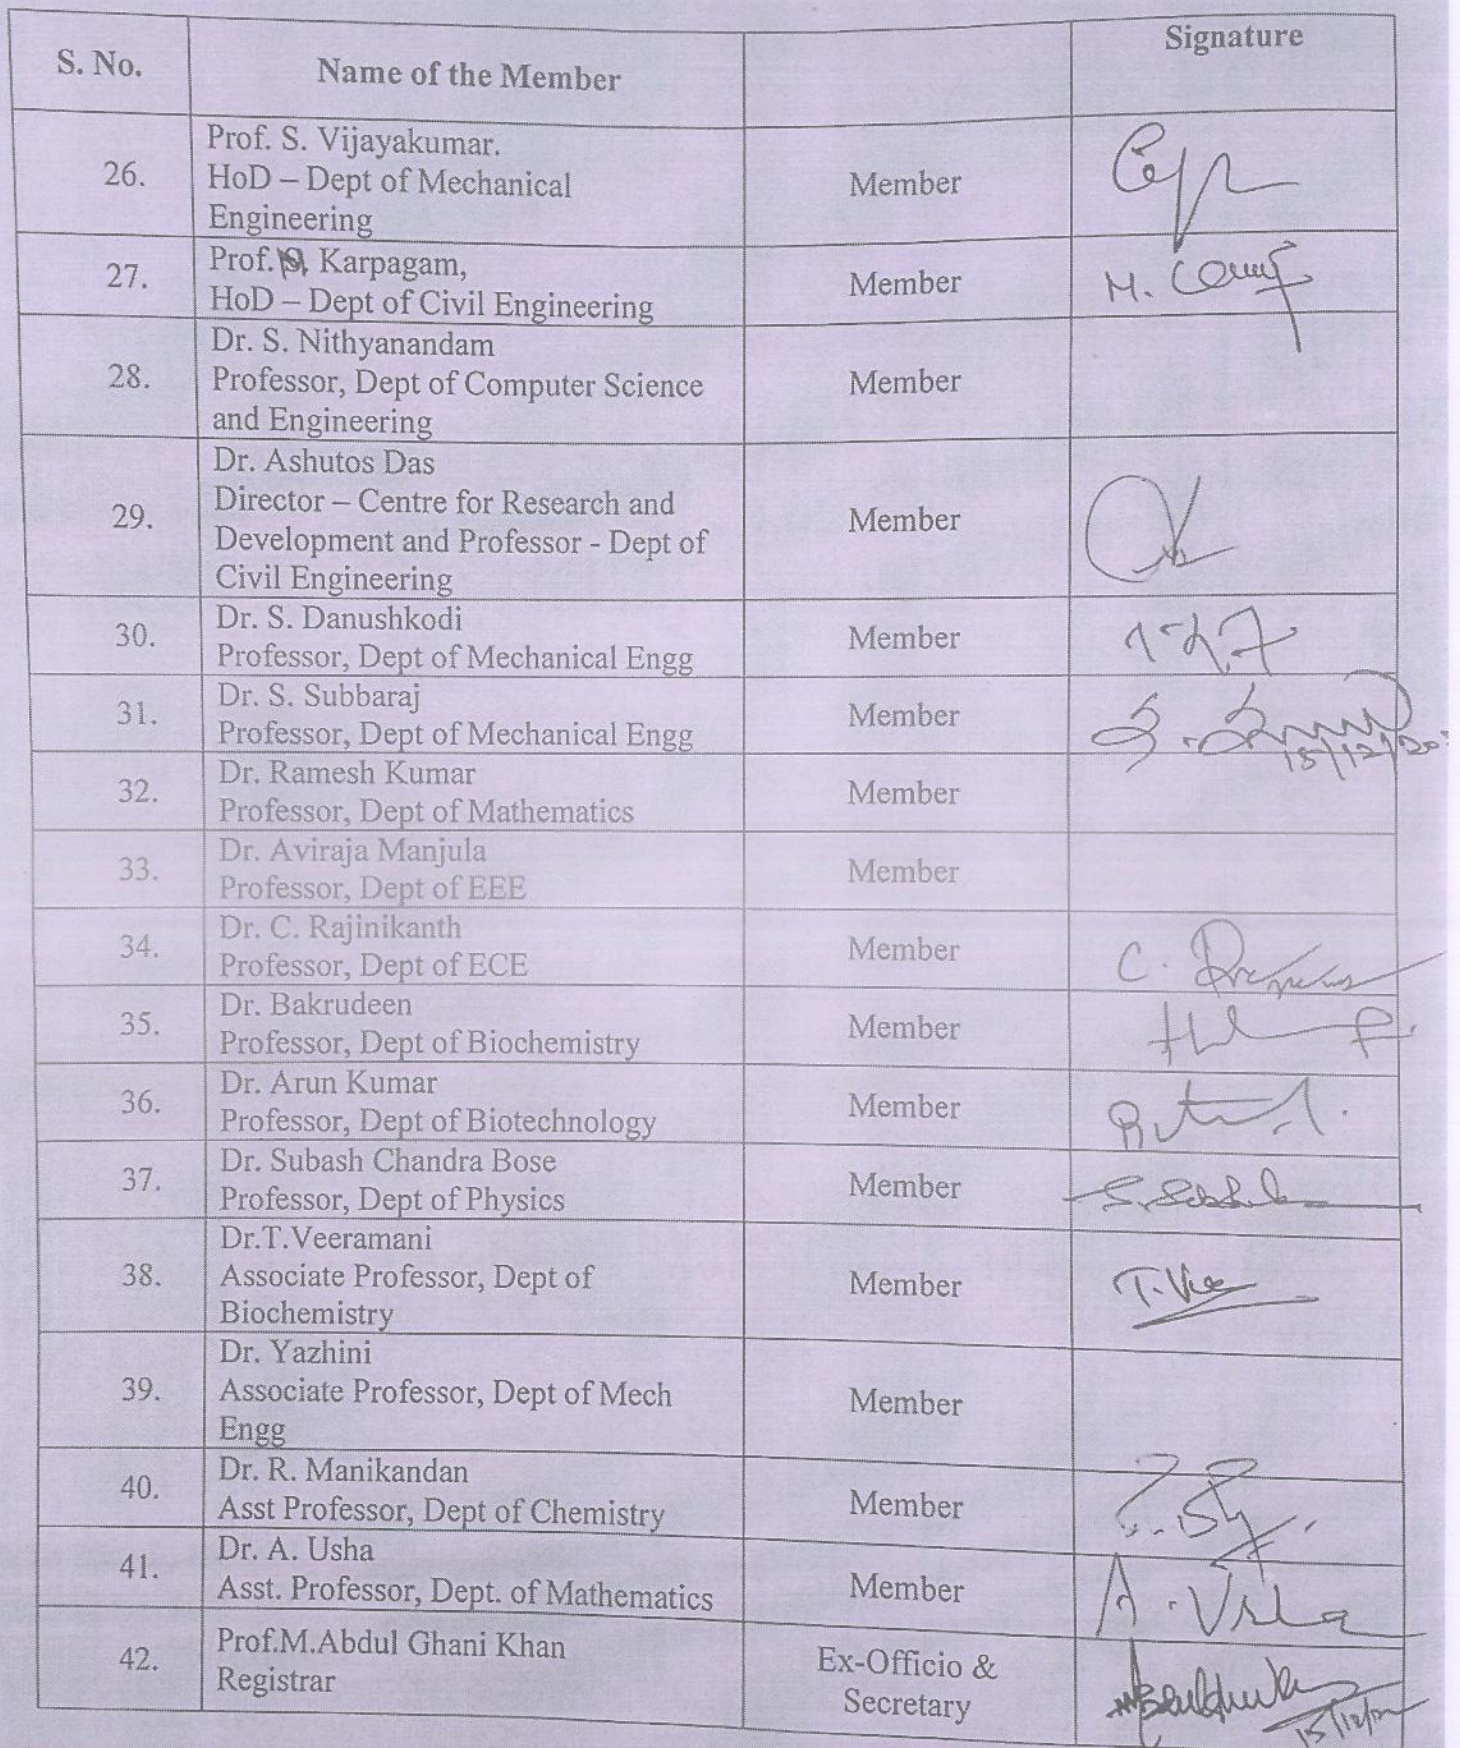 S. No.
Name of the Member
Signature
26.
Prof. S. Vijayakumar.
HoD – Dept of Mechanical
Engineering
Member
27.
Prof. Karpagam,
HoD – Dept of Civil Engineering
Member
M.
28.
Dr. S. Nithyanandam
Professor, Dept of Computer Science
and Engineering
Member
29.
Dr. Ashutos Das
Director – Centre for Research and
Development and Professor - Dept of
Civil Engineering
Member
30.
Dr. S. Danushkodi
Professor, Dept of Mechanical Engg
Member
31.
Dr. S. Subbaraj
Professor, Dept of Mechanical Engg
Member
32.
Dr. Ramesh Kumar
Professor, Dept of Mathematics
Member
33.
Dr. Aviraja Manjula
Professor, Dept of EEE
Member
34.
Dr. C. Rajinikanth
Professor, Dept of ECE
Member
C.
35.
Dr. Bakrudeen
Professor, Dept of Biochemistry
Member
36.
Dr. Arun Kumar
Professor, Dept of Biotechnology
Member
37.
Dr. Subash Chandra Bose
Professor, Dept of Physics
Member
38.
Dr.T.Veeramani
Associate Professor, Dept of
Biochemistry
Member
T. Vee
39.
Dr. Yazhini
Associate Professor, Dept of Mech
Engg
Member
40.
Dr. R. Manikandan
Asst Professor, Dept of Chemistry
Member
41.
Dr. A. Usha
Asst. Professor, Dept. of Mathematics
Member
A. Usha
42.
Prof.M.Abdul Ghani Khan
Registrar
Ex-Officio &
Secretary